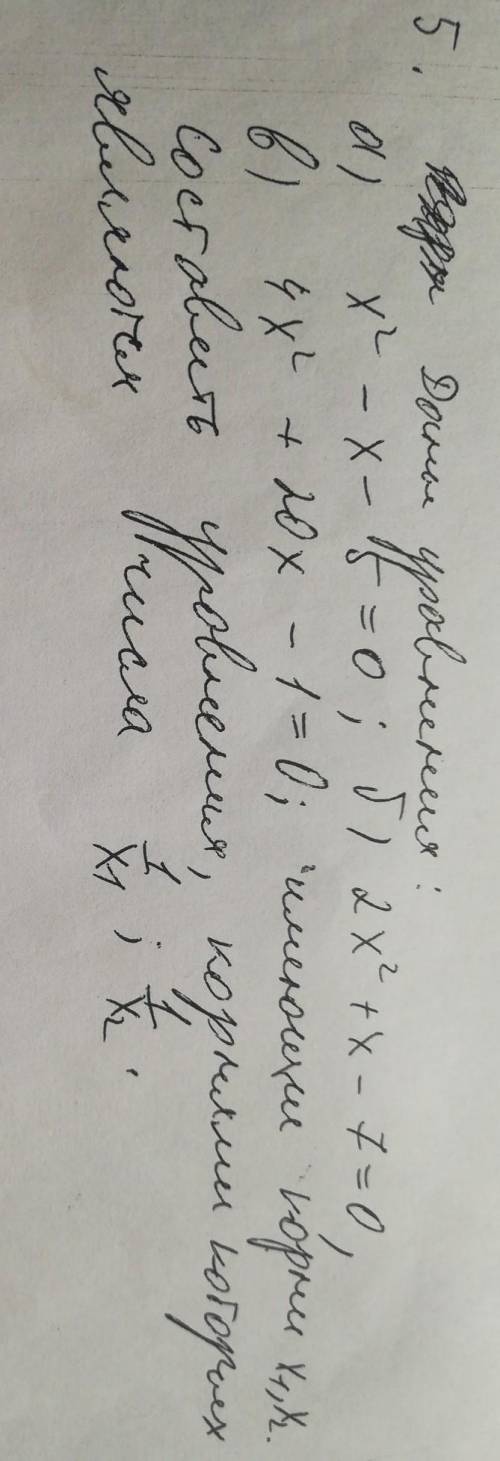 5. Даны уравнения:
а) x² - x - 5 = 0; б) 2x² + x - 7 = 0,
в) 4x² + 20x - 1 = 0; имеющие корни x₁, x₂.
Составить уравнения, корнями которых
являются числа 1/x₁ ; 1/x₂ .